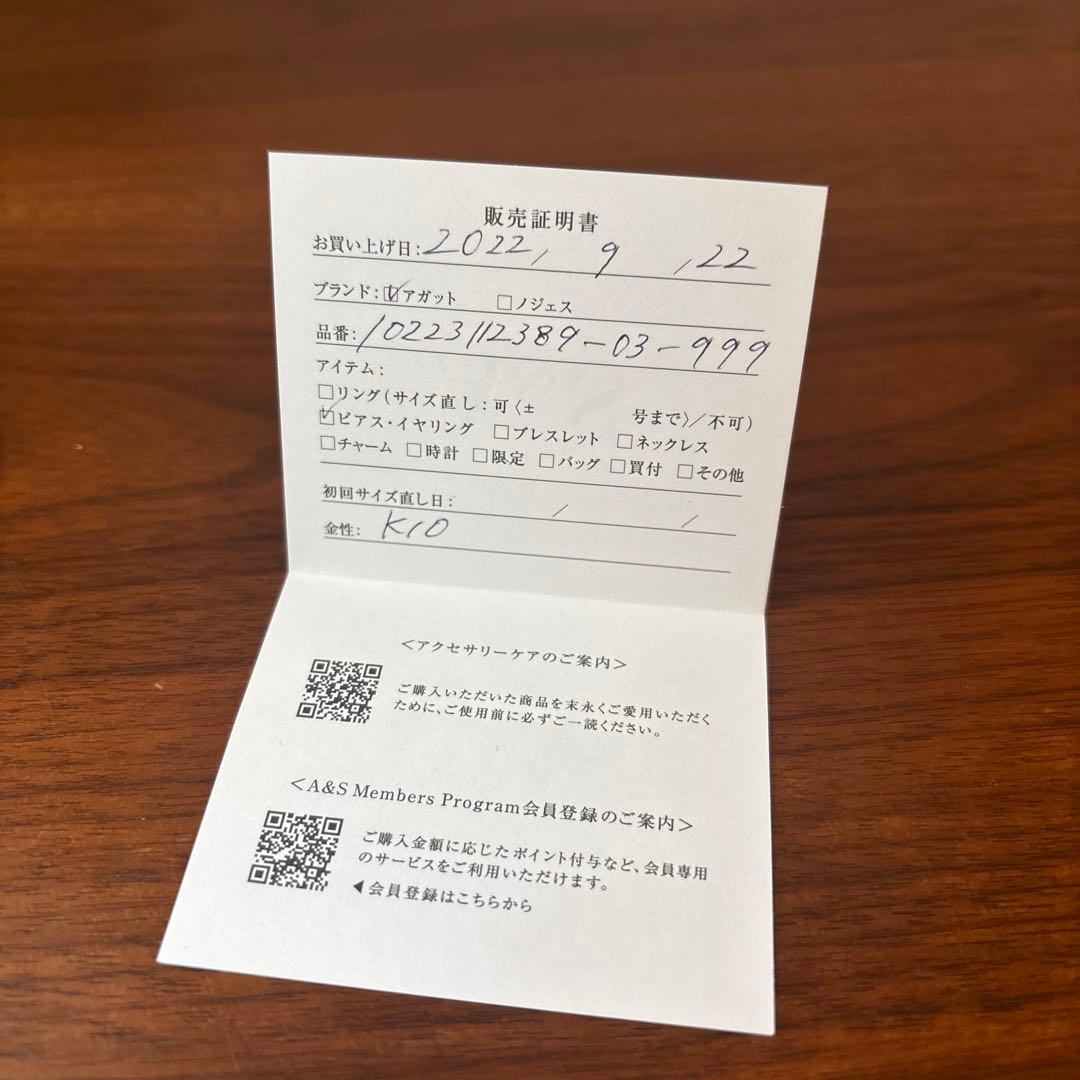 販売証明書
お買い上げ日: 2022, 9 , 22
ブランド: ☑アガット □ノジェス
品番: 10223112389-03-999
アイテム:
□リング(サイズ直し:可〈± 号まで〉/不可)
☑ピアス・イヤリング □ブレスレット □ネックレス
□チャーム □時計 □限定 □バッグ □買付 □その他
初回サイズ直し日: / /
金性: K10
<アクセサリーケアのご案内>
ご購入いただいた商品を末永くご愛用いただく
ために、ご使用前に必ずご一読ください。
<A&S Members Program会員登録のご案内>
ご購入金額に応じたポイント付与など、会員専用
のサービスをご利用いただけます。
◀会員登録はこちらから